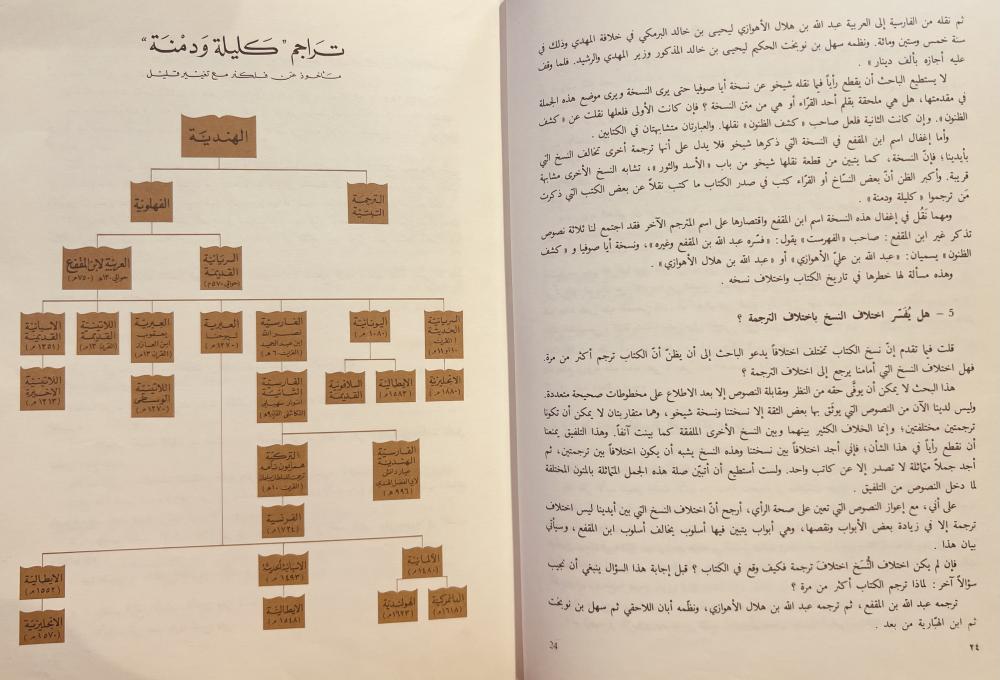 ثم نقله من الفارسية إلى العربية عبد الله بن هلال الأهوازي ليحيى بن خالد البرمكي في خلافة المهدي وذلك في
سنة خمس وستين ومائة. ونظمه سهل بن نوبخت الحكيم ليحيى بن خالد المذكور وزير المهدي والرشيد. فلما وقف
عليه أجازه بألف دينار» .
لا يستطيع الباحث أن يقطع رأياً فيما نقله شيخو عن نسخة أيا صوفيا حتى يرى النسخة ويرى موضع هذه الجملة
في مقدمتها، هل هي ملحقة بقلم أحد القرّاء أو هي من متن النسخة ؟ فإن كانت الأولى فلعلها نقلت عن «كشف
الظنون». وإن كانت الثانية فلعل صاحب «كشف الظنون» نقلها. والعبارتان متشابهتان في الكتابين .
وأما إغفال اسم ابن المقفع في النسخة التي ذكرها شيخو فلا يدل على أنها ترجمة أخرى تخالف النسخ التي
بأيدينا؛ فإنّ النسخة، كما يتبين من قطعة نقلها شيخو من باب «الأسد والثور»، تشابه النسخ الأخرى مشابهة
قريبة. وأكبر الظن أنّ بعض النسّاخ أو القرّاء كتب في صدر الكتاب ما كتب نقلاً عن بعض الكتب التي ذكرت
مَن ترجموا «كليلة ودمنة» .
ومهما نَقُل في إغفال هذه النسخة اسم ابن المقفع واقتصارها على اسم المترجم الآخر فقد اجتمع لنا ثلاثة نصوص
تذكر غير ابن المقفع : صاحب «الفهرست» يقول: «فسّره عبد الله بن المقفع وغيره»، ونسخة أيا صوفيا و «كشف
الظنون» يسميان: «عبد الله بن عليّ الأهوازي» أو «عبد الله بن هلال الأهوازي» .
وهذه مسألة لها خطرها في تاريخ الكتاب واختلاف نسخه .
5 – هل يُفَسَّر اختلاف النسخ باختلاف الترجمة ؟
قلت فيما تقدم إنّ نسخ الكتاب تختلف اختلافاً يدعو الباحث إلى أن يظنّ أنّ الكتاب ترجم أكثر من مرة.
فهل اختلاف النسخ التي أمامنا يرجع إلى اختلاف الترجمة ؟
هذا البحث لا يمكن أن يوفَّى حقه من النظر ومقابلة النصوص إلا بعد الاطلاع على مخطوطات صحيحة متعددة.
وليس لدينا الآن من النصوص التي يوثق بها بعض الثقة إلا نسختنا ونسخة شيخو، وهما متقاربتان لا يمكن أن تكونا
ترجمتين مختلفتين؛ وإنما الخلاف الكثير بينهما وبين النسخ الأخرى الملفقة كما بينت آنفاً. وهذا التلفيق يمنعنا
أن نقطع رأياً في هذا الشأن؛ فإني أجد اختلافاً بين نسختنا وهذه النسخ يشبه أن يكون اختلافاً بين ترجمتين، ثم
أجد جملاً متماثلة لا تصدر إلا عن كاتب واحد. ولست أستطيع أن أتبيّن صلة هذه الجمل المتماثلة بالمتون المختلفة
لما دخل النصوص من التلفيق .
على أني، مع إعواز النصوص التي تعين على صحة الرأي، أرجح أنّ اختلاف النسخ التي بين أيدينا ليس اختلاف
ترجمة إلا في زيادة بعض الأبواب ونقصها، وهي أبواب يتبين فيها أسلوب يخالف أسلوب ابن المقفع، وسيأتي
بيان هذا .
فإن لم يكن اختلاف النُّسخ اختلافَ ترجمة فكيف وقع في الكتاب ؟ قبل إجابة هذا السؤال ينبغي أن نجيب
سؤالاً آخر : لماذا ترجم الكتاب أكثر من مرة ؟
ترجمه عبد الله بن المقفع، ثم ترجمه عبد الله بن هلال الأهوازي، ونظّمه أبان اللاحقي ثم سهل بن نوبخت
ثم ابن الهبّارية من بعد .
24
٢٤
تراجم "كليلة ودمنة"
مأخوذ عن فلكنر مع تغيير قليل
الهندية
الفهلوية
الترجمة
التبتية
العربية لابن المقفع
حوالي ١٣٠هـ (٧٥٠م)
السريانية
القديمة
(حوالي ٥٧٠م)
الاسبانية
القديمة
(١٢٥١م)
اللاتينية
القديمة
(القرن ١٣م)
العبرية
ليعقوب
ابن العازر
(القرن ١٣م)
العبرية
ليوحنا
(١٢٧٠م)
الفارسية
نصر الله
ابن عبد الحميد
(القرن ٦هـ)
اليونانية
(١٠٨٠م)
السريانية
الحديثة
(القرن
١٠ أو ١١م)
اللاتينية
الاخيرة
(١٣١٣م)
اللاتينية
الوسطى
(١٢٧٠م)
الفارسية
الثانية
انوار سهيلى
السلافونية
القديمة
الايطالية
(١٥٨٣م)
الانجليزية
(١٨٨٠م)
التركية
همايون نامه
(القرن ١٠هـ)
الفارسية
الهندية
عيار دانش
لابي الفضل الهندي
(٩٩٦هـ)
الفرنسية
(١٧٢٤م)
الايطالية
(١٥٥٢م)
الاسبانية الحديثة
(١٤٩٣م)
الالمانية
(١٤٨٠م)
الانجليزية
(١٥٧٠م)
الايطالية
(١٥٤٨م)
الهولندية
(١٦٢٣م)
الدانمركية
(١٦١٨م)